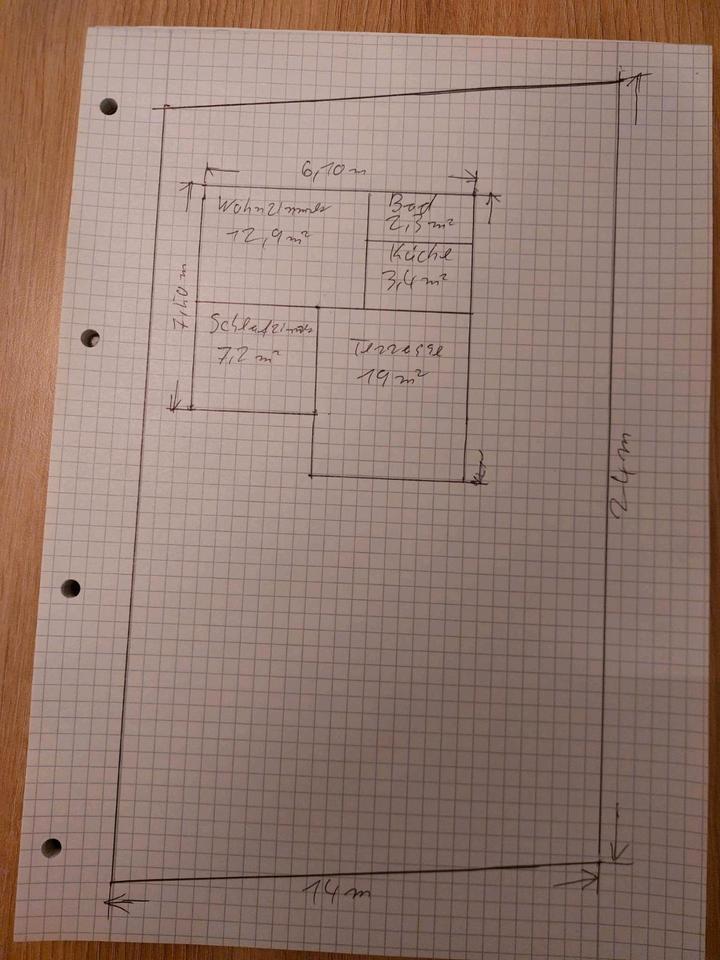 6,10 m
Wohnzimmer
12,9 m²
Bad
2,5 m²
Küche
3,4 m²
7,50 m
Schlafzimmer
7,2 m²
Terrasse
19 m²
24 m
14 m